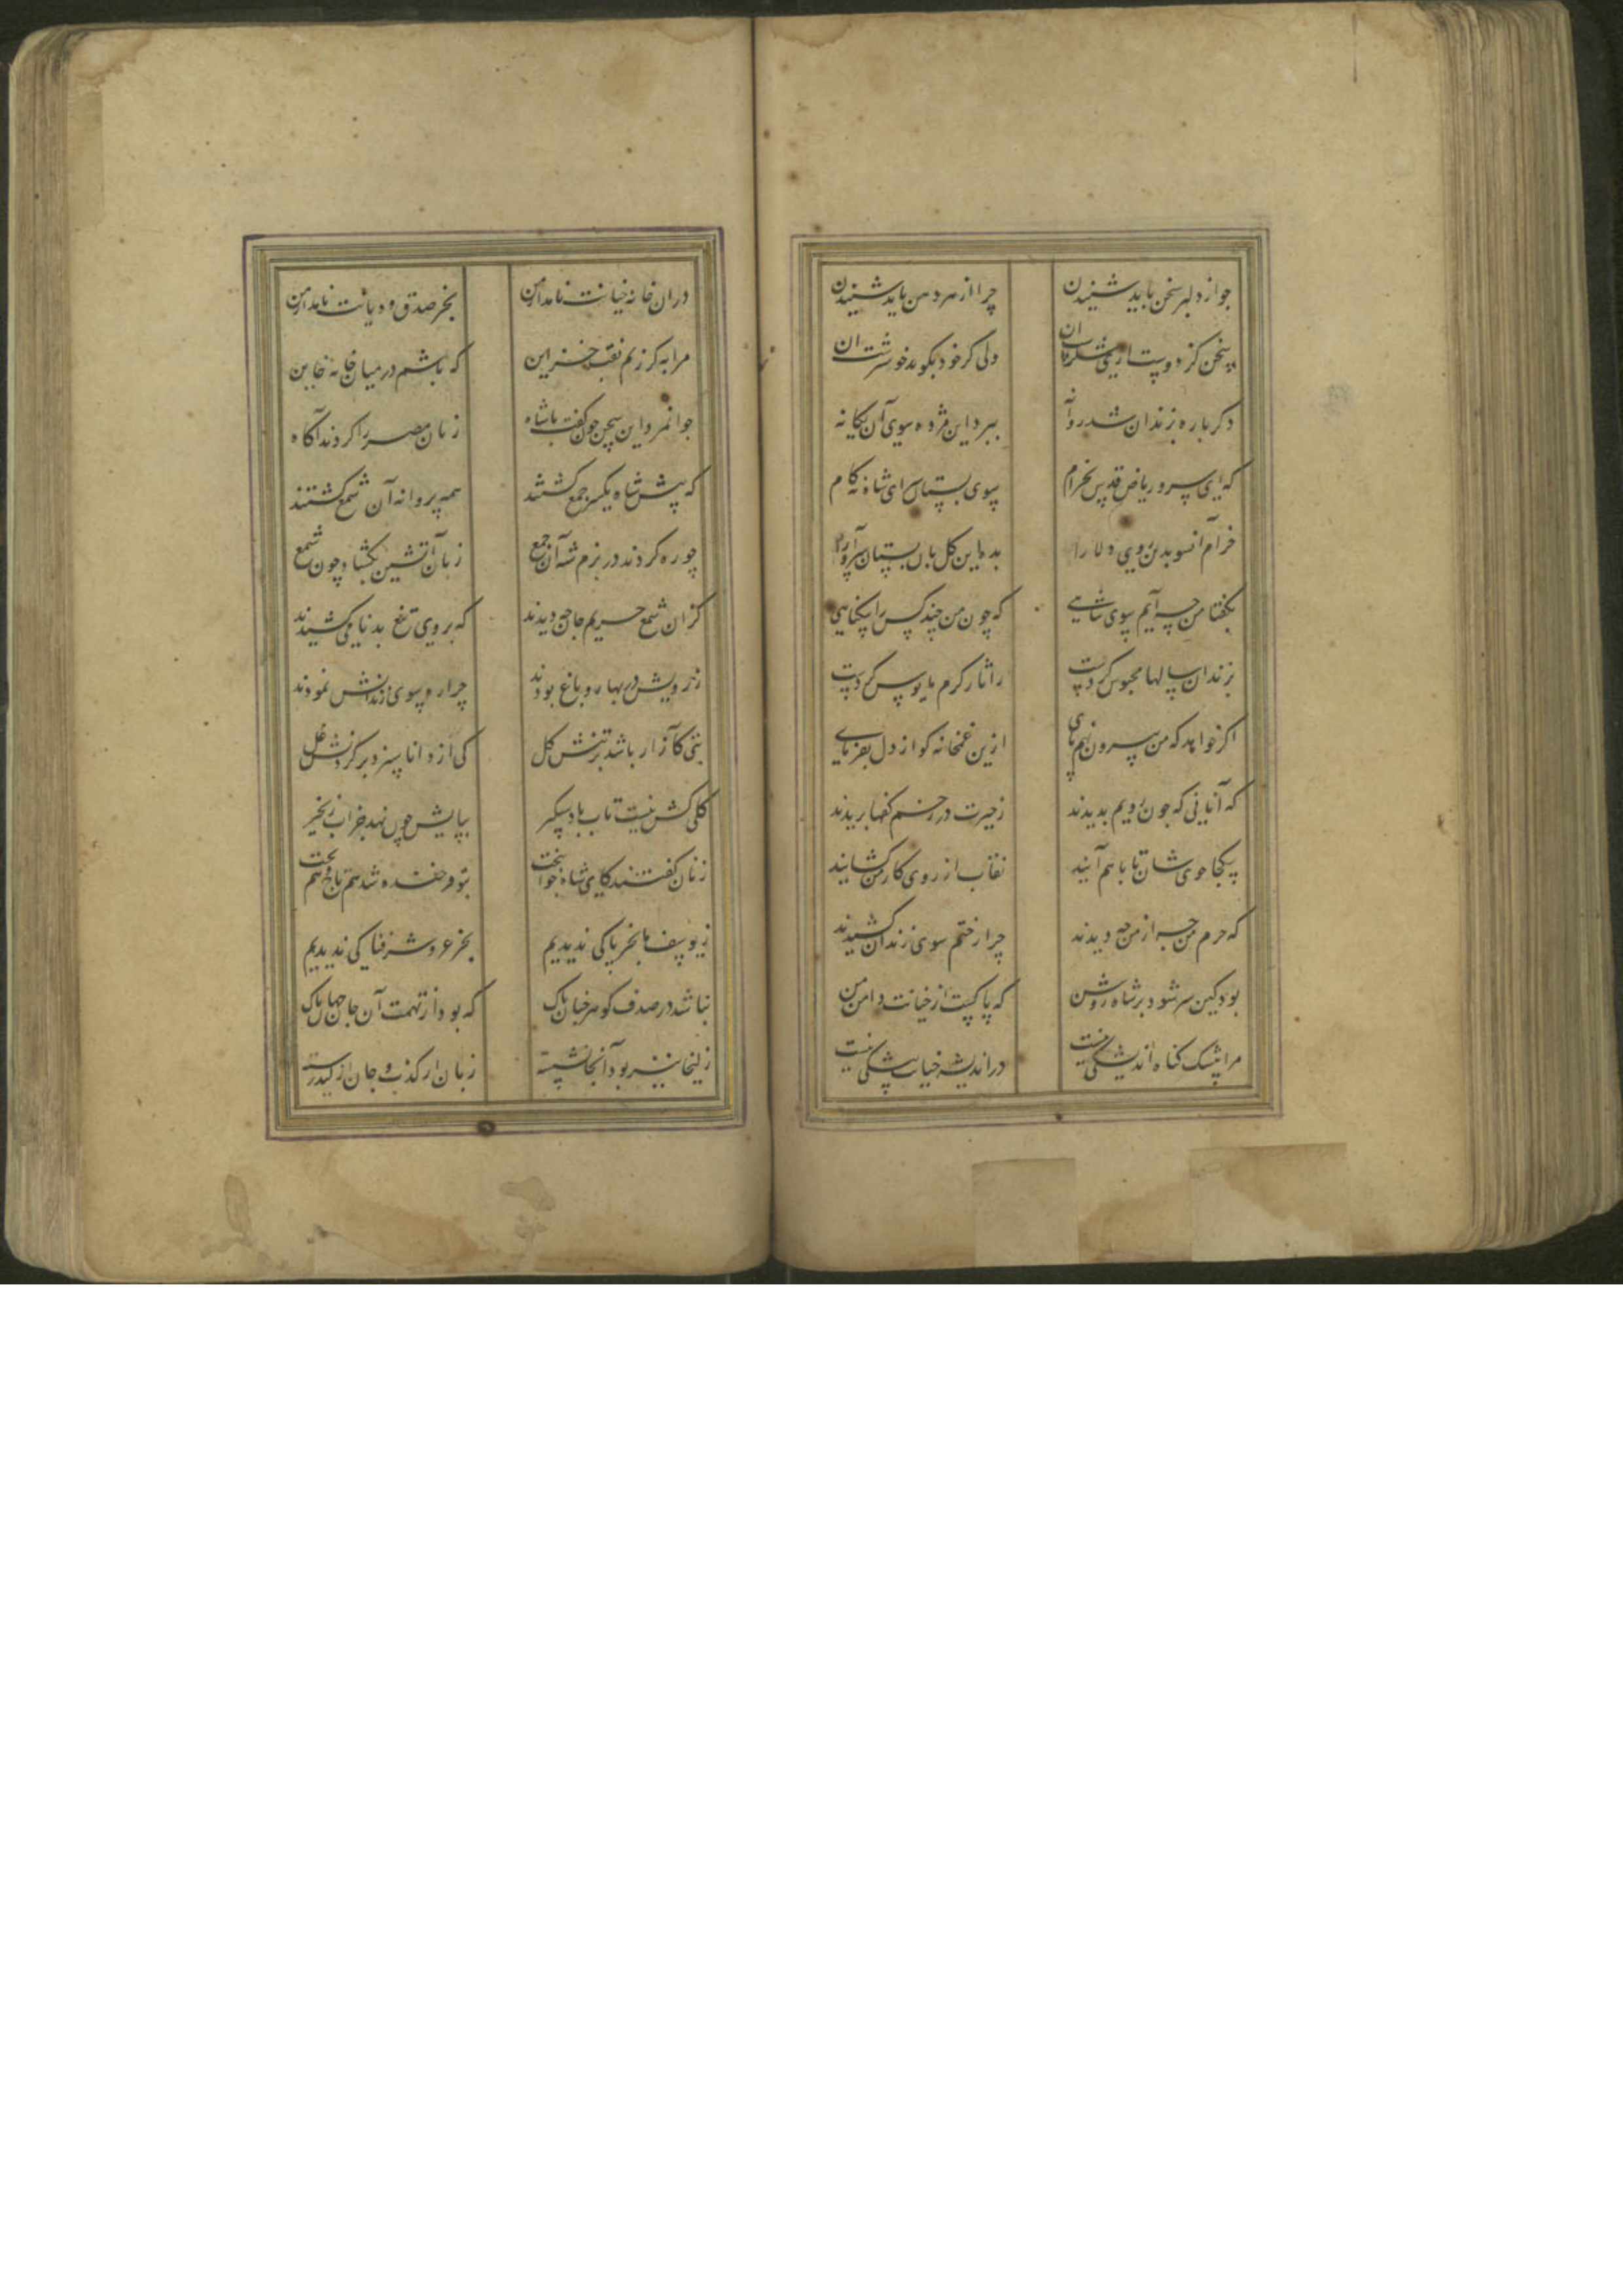 جو از دلبر سخن باید شنیدن چرا از هر دهن باید شنیدن
سخن کز دوست آری شکرست آن ولی گر خود بگوید خوشترست آن
دکر باره بزندان شد روانه ببرد این مژده سوی آن یکانه
که ای سرو ریاض قدس بخرام سوی بستان سرای شاه نه کام
خرام آنسو بدین روی دلارا بده این کل بان بستان سرا را
بکفتا من چه آیم سوی شاهی که چون من چند کس را بیکناهی
بزندان سالها محبوس کردست ز اثار کرم مایوس کردست
اکر خواهد که من بیرون نهم پای ازین غمخانه کو از دل بفرمای
که آنانی که جون رویم بدیدند ز حیرت در رخم کفها بریدند
بیکجا جوی شان تا با هم آیند نقاب از روی کار من کشایند
که جرم من چه بود از من چه دیدند چرا رختم سوی زندان کشیدند
بود کین سر شود بر شاه روشن که پاکست از خیانت دامن من
مرا پیشه کناه اندیشکی نیست در اندیشه خیانت پیشکی نیست
دران خانه خیانت نامد از من بجز صدق و دیانت نامد از من
مرا به کر زنم نقب خزاین که باشم در میان خانه خاین
جوانمرد این سخن چون کفت با شاه زنان مصر را کردند آکاه
که پیش شاه یکسر جمع کشتند همه پروانه آن شمع کشتند
چو ره کردند در بزم شه آن جمع زبان آتشین بکشاد چون شمع
کزان شمع حریم جان چه دیدند که بر وی تیغ بدنامی کشیدند
ز رویش در بهار و باغ بودند چرا ره سوی زندانش نمودند
بتی کآزار باشد بر تنش کل کی از دانا سزد بر کردنش غل
کلی کش نیست تاب باد شبکیر بپایش چون نهد جز آب زنجیر
زنان کفتند کای شاه جوانبخت بتو فرخنده شد هم تاج و هم تخت
ز یوسف ما بجز پاکی ندیدیم بجز عز و شرفناکی ندیدیم
نباشد در صدف کوهر چنان پاک که بود از تهمت آن جان جهان پاک
زلیخا نیز بود آنجا نشسته زبان از کذب و جان از کید رسته